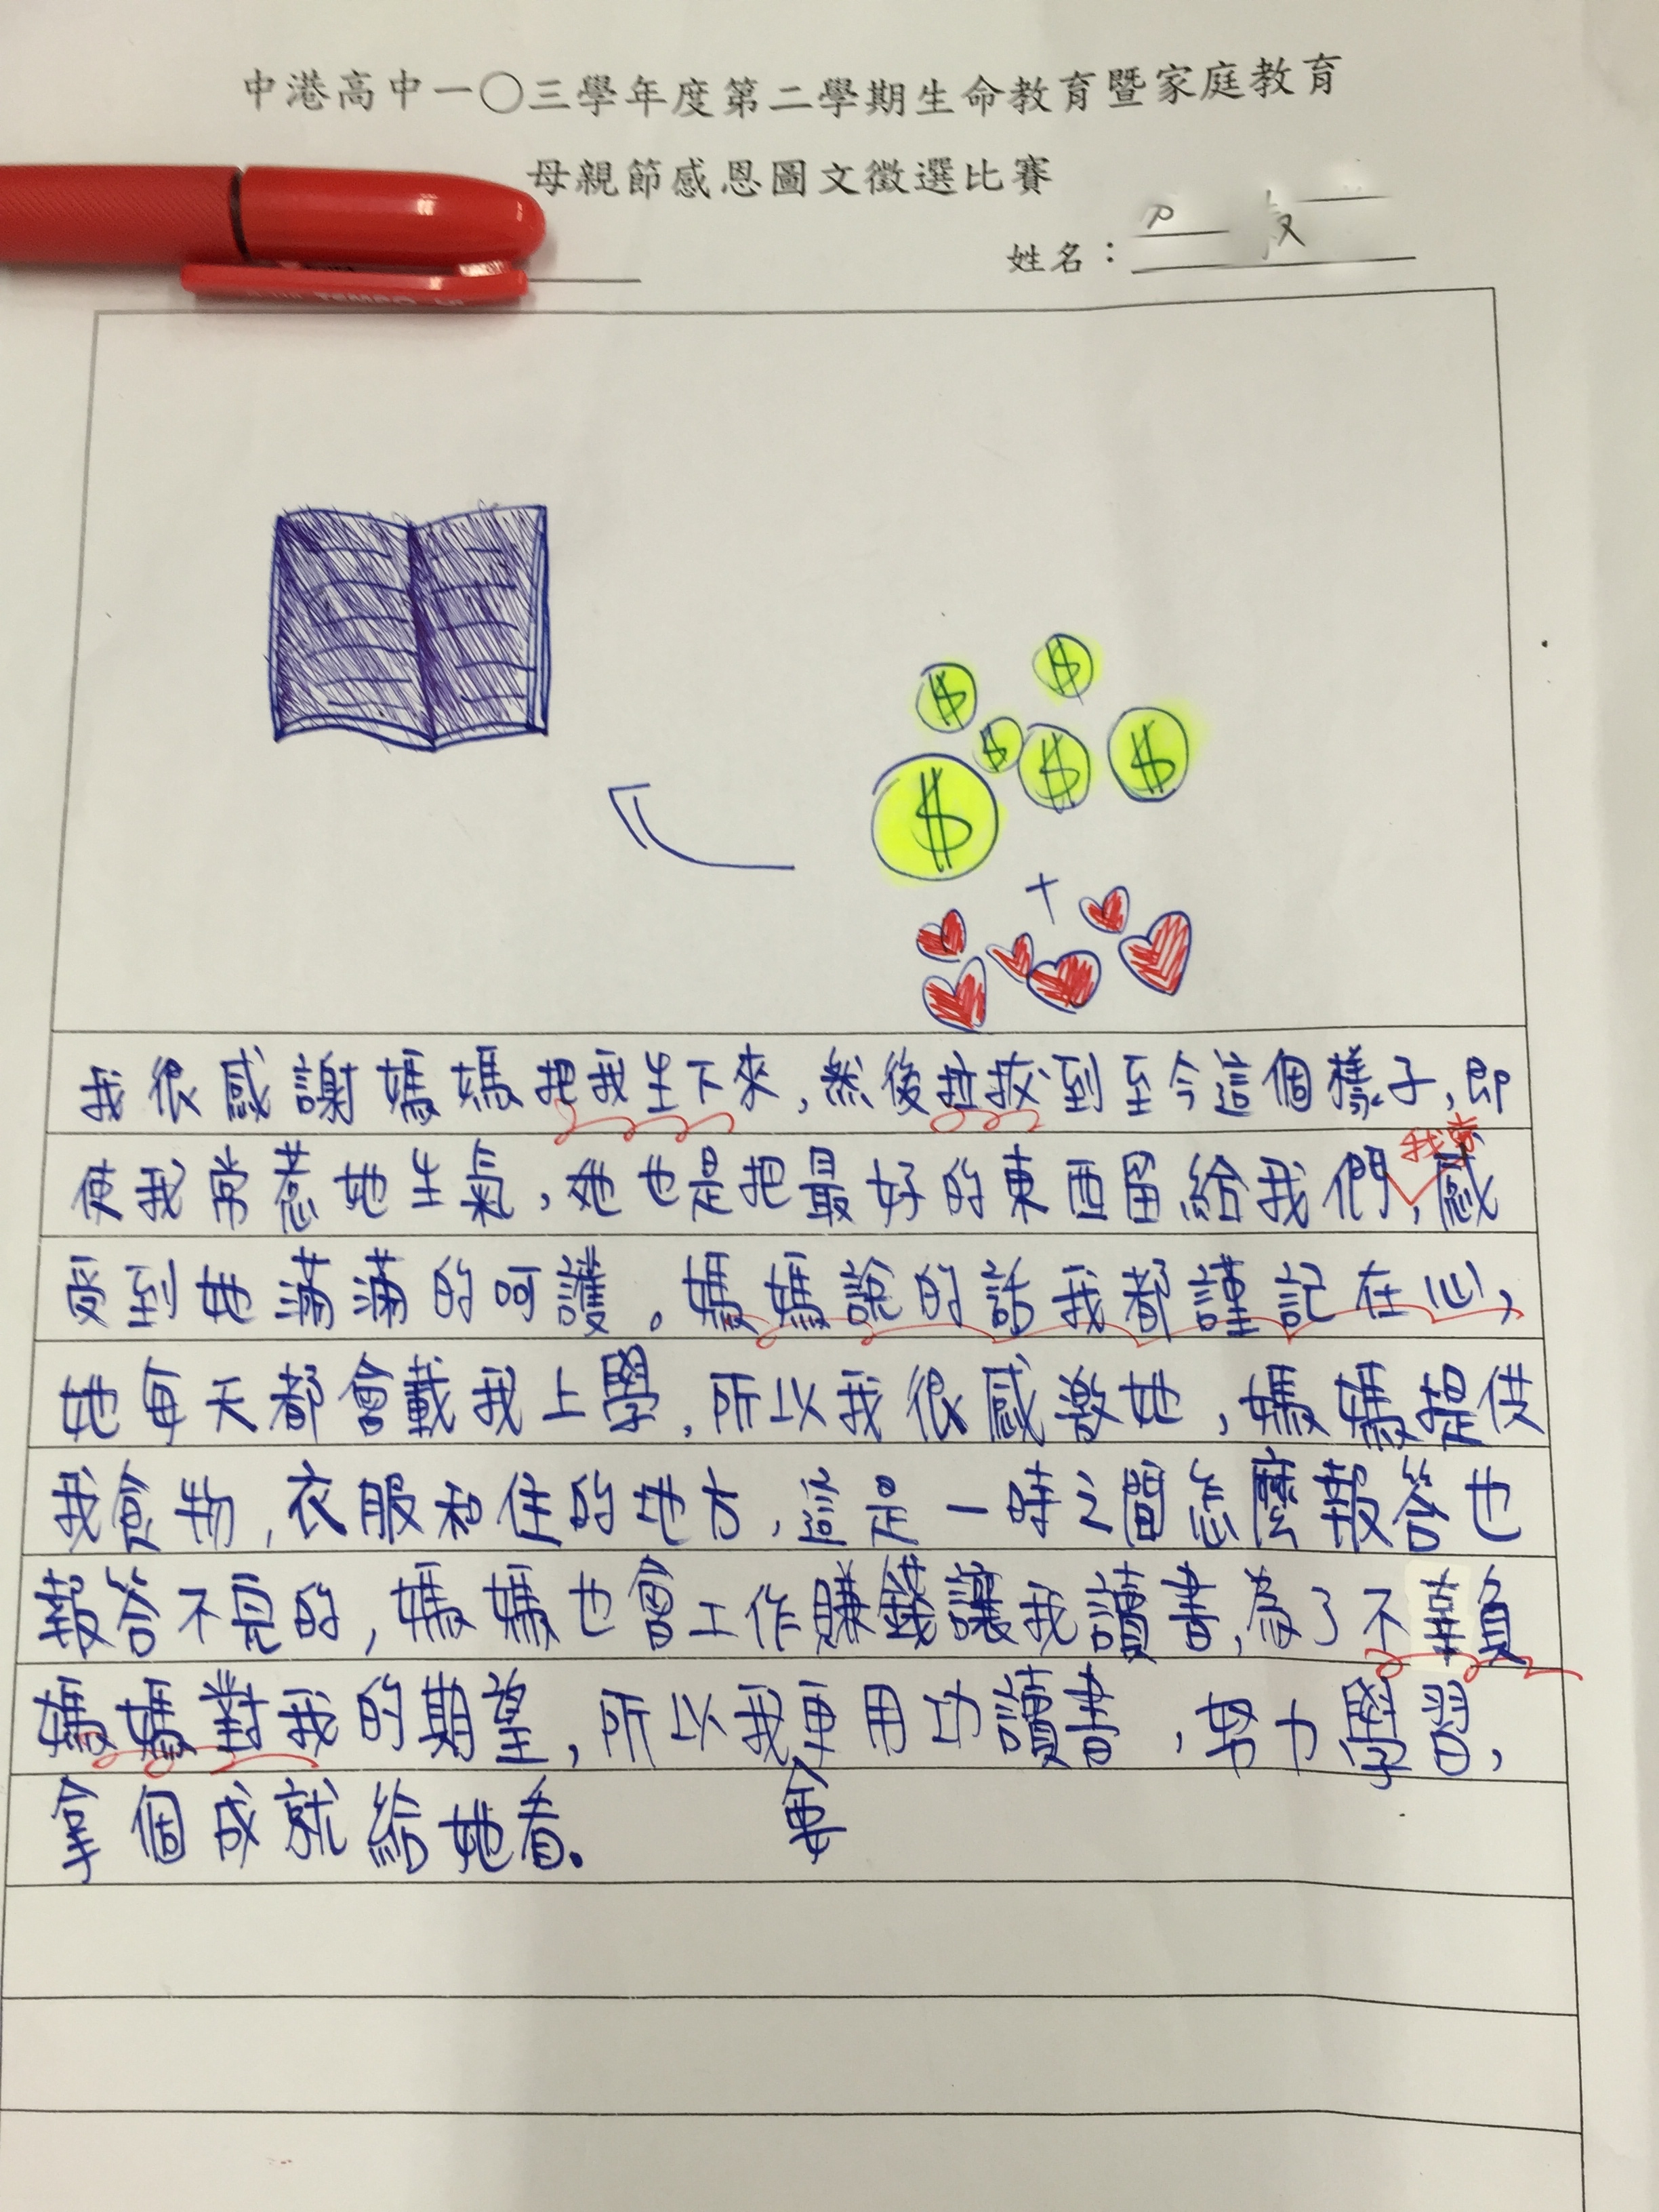 中港高中一〇三學年度第二學期生命教育暨家庭教育
母親節感恩圖文徵選比賽
姓名：
$ $ $ $ $ $
+
我很感謝媽媽把我生下來,然後拉拔到至今這個樣子,即
我常
使我常惹她生氣,她也是把最好的東西留給我們,感
受到她滿滿的呵護。媽媽說的話我都謹記在心,
她每天都會載我上學,所以我很感激她,媽媽提供
我食物,衣服和住的地方,這是一時之間怎麼報答也
報答不完的,媽媽也會工作賺錢讓我讀書,為了不辜負
媽媽對我的期望,所以我更用功讀書,努力學習,
會要
拿個成就給她看。